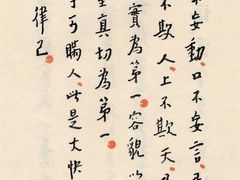 妄動口不妄言
不欺人上不欺天
實為第一容貌以
真切為第一
可瞞人此是大快
律己